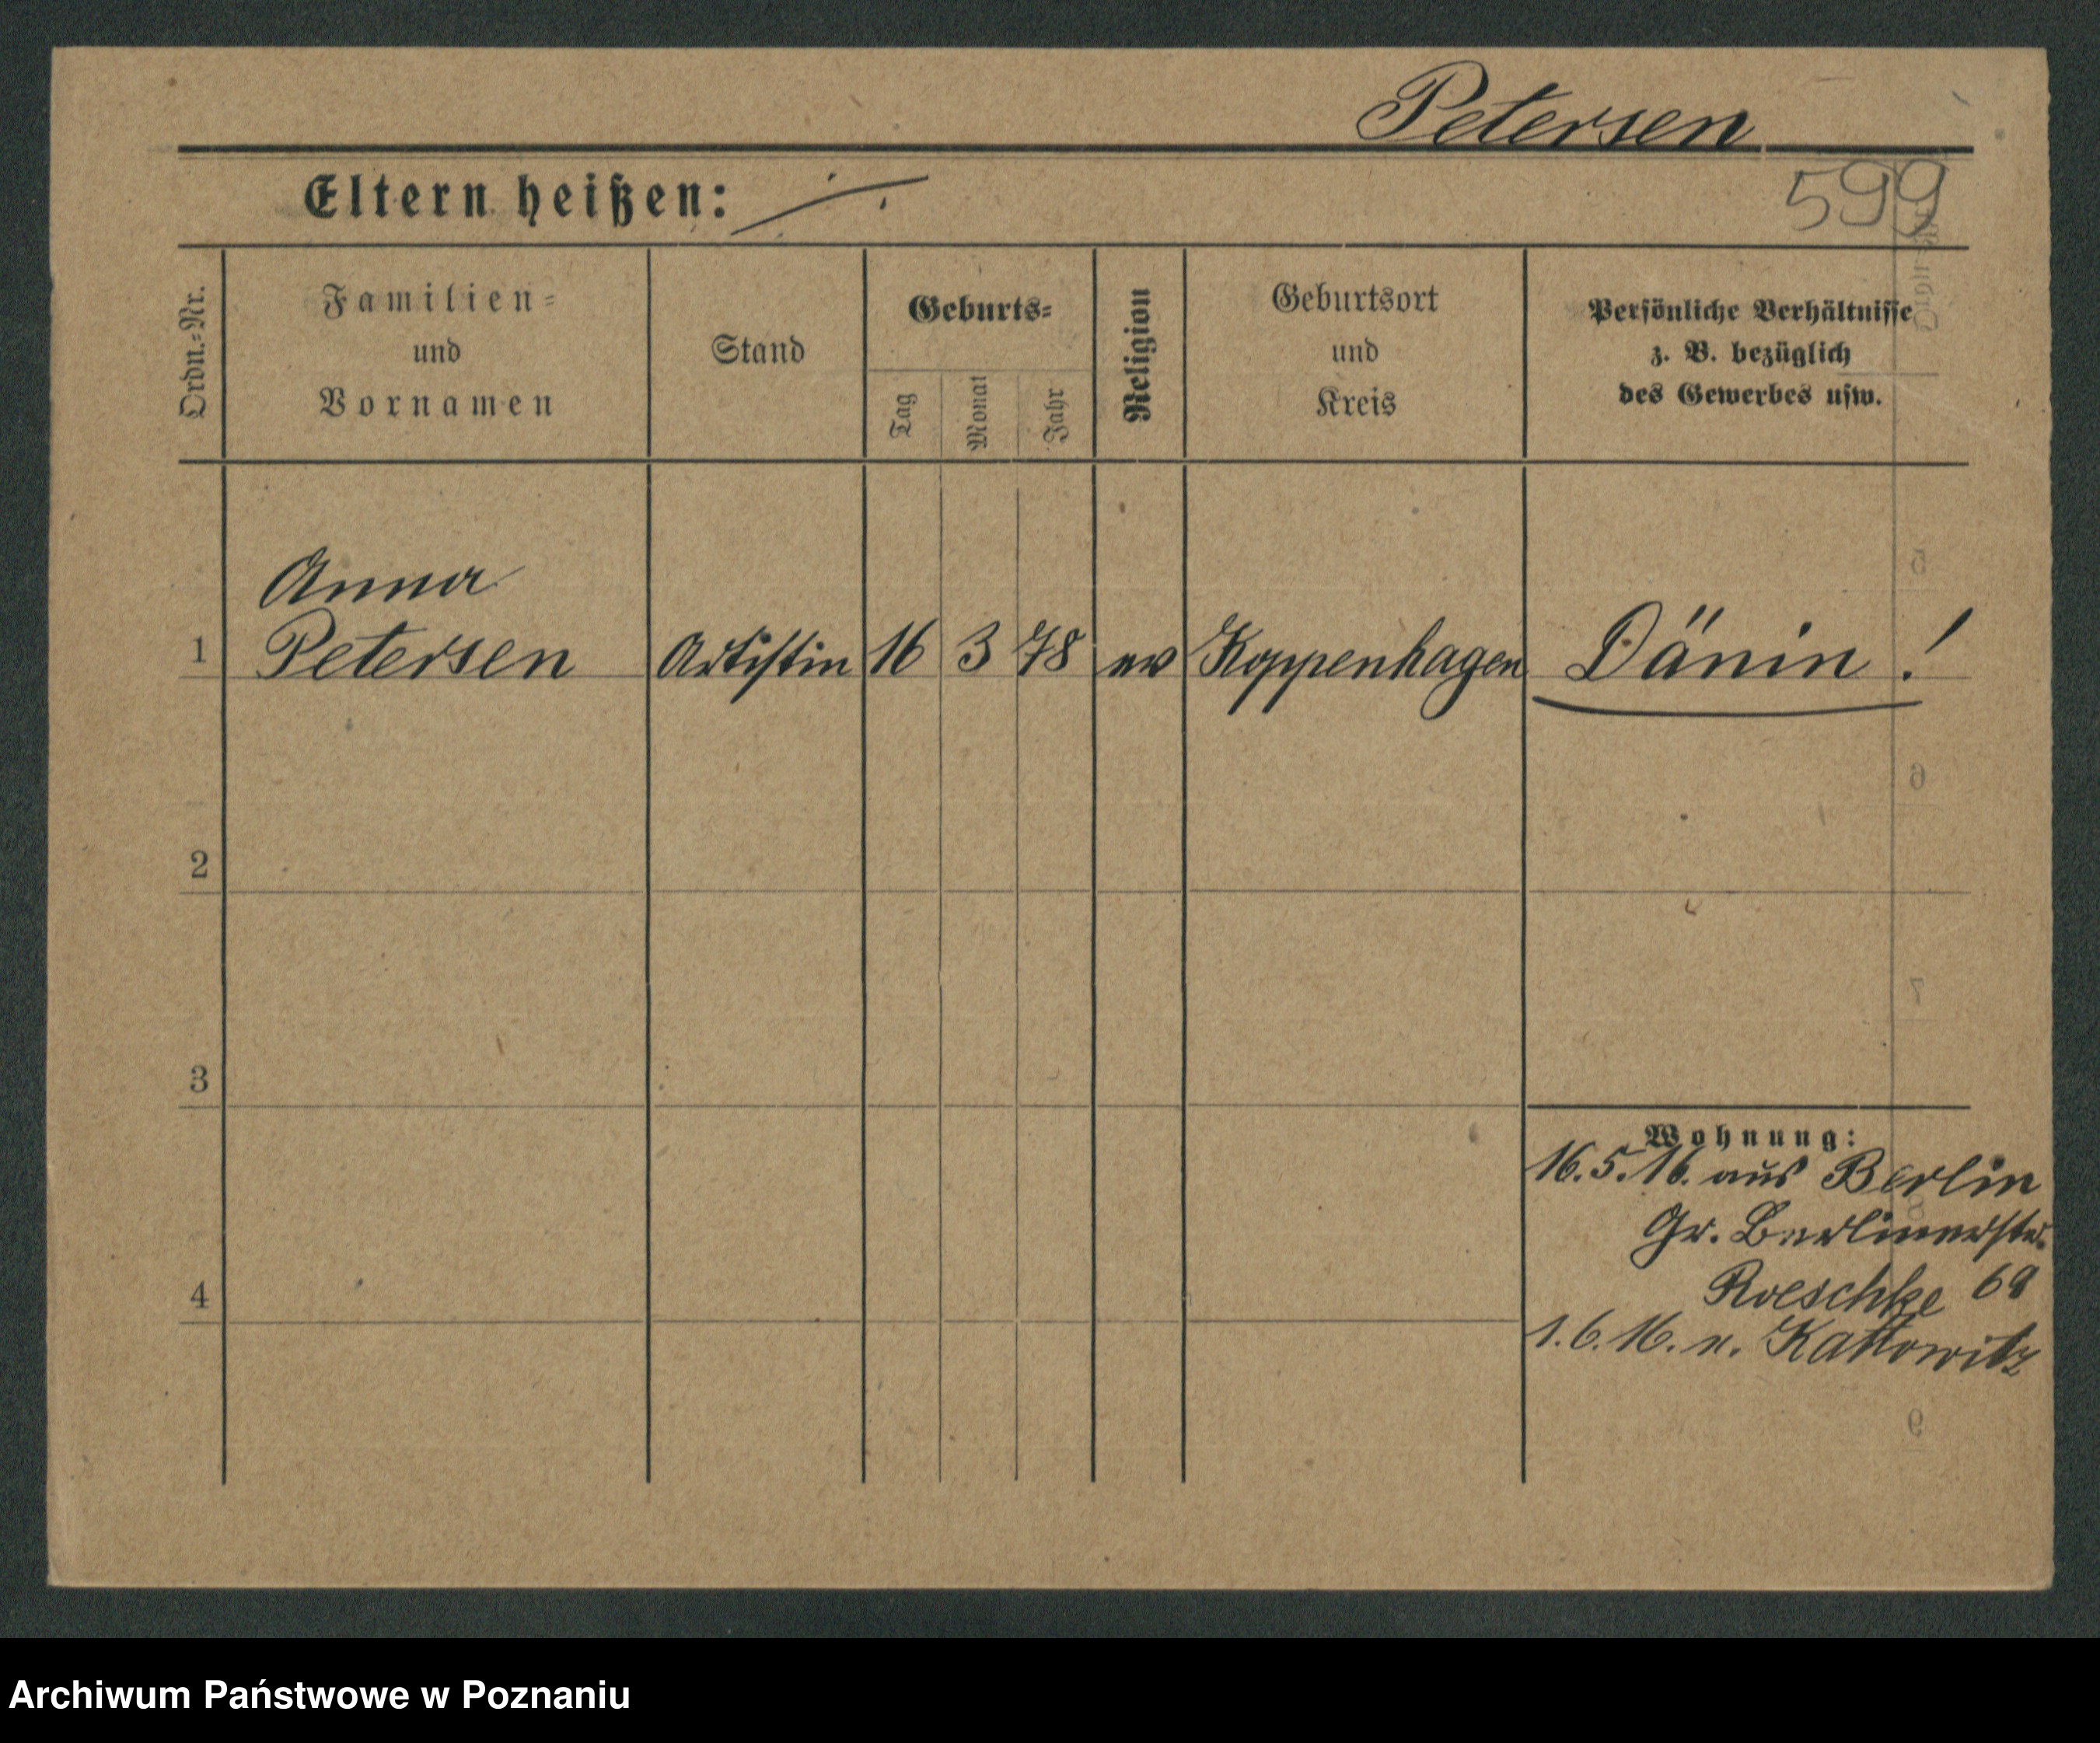 Petersen
Eltern heißen: ·/.
599
Ordn.=Nr.
Familien=
und
Vornamen
Stand
Geburts=
Tag
Monat
Jahr
Religion
Geburtsort
und
Kreis
Persönliche Verhältnisse
z. B. bezüglich
des Gewerbes usw.
Anna
1 Petersen Artistin 16 3 78 ev Koppenhagen Dänin!
2
3
4
Wohnung:
16.5.16. aus Berlin
Gr. Berlinerstr.
Roeschke 69
1.6.16. n. Kattowitz
5
6
7
9
Archiwum Państwowe w Poznaniu